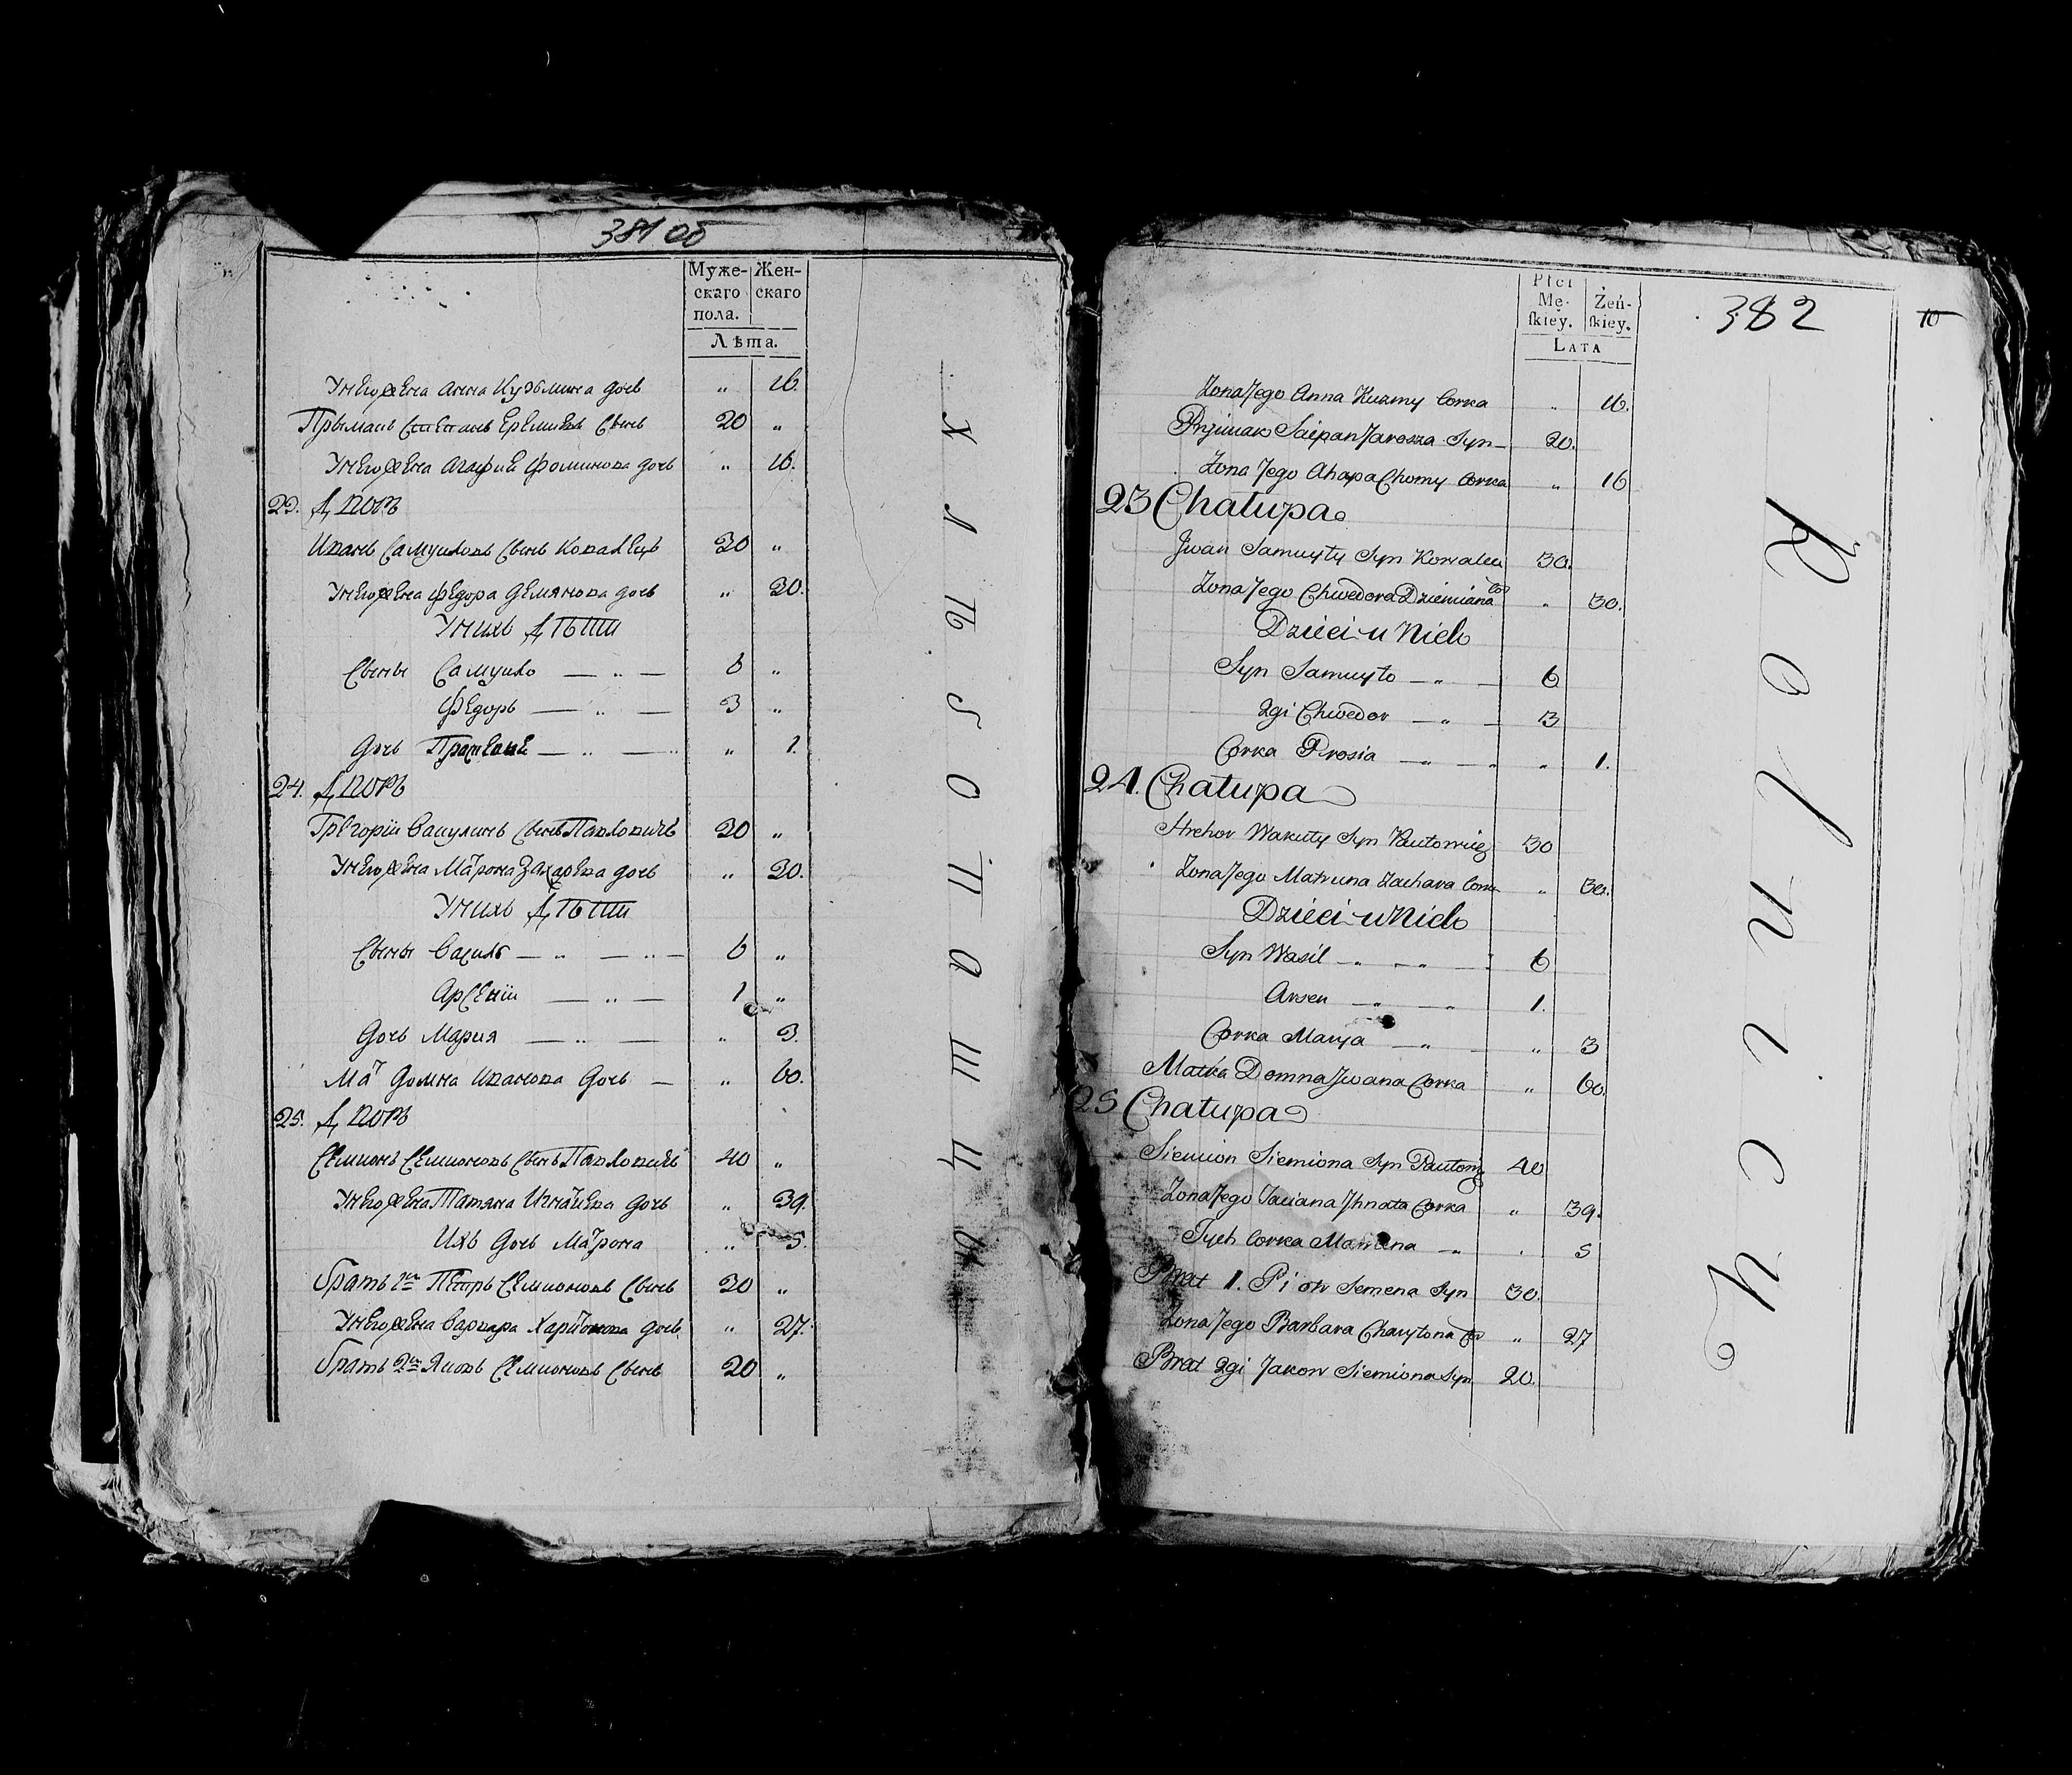 381 об
Муже- Жен-
скаго скаго
пола.
Лѣта.
Унего жена Анна Кузьмина дочь " 16.
Прымакъ Степанъ Еремѣевъ Сынъ 20 "
Унего жена Агафиѣ Фоминова дочь " 16.
23. Дворъ
Иванъ Самуиловъ Сынъ Ковалецъ 30 "
Унего жена Федора Демянова дочь " 30.
Унихъ Дѣти
Сыны Самуило — " — 6 "
Федоръ — " — 3 "
Дочь — " — " 1.
24. Дворъ
Григорій Вакулинъ Сынъ Павловичъ 30 "
Унего жена Матрона Захарева дочь " 30.
Унихъ Дѣти
Сыны Василь — " — " — 6 "
Арсеній — " — 1 "
Дочь Мария — " — " 3.
Мат Домна Иванова Дочь — " 60.
25. Дворъ
Семионъ Семионовъ Сынъ Павловичъ 40 "
Унего жена Татяна Игнатева дочь " 39.
Ихъ Дочь Матрона " 5.
Братъ 1й Петръ Семионовъ Сынъ 30 "
Унего жена Варвара Харитонова дочь " 27.
Братъ 2й Яковъ Семионовъ Сынъ 20 "
Хлѣбопашцы
Płci
Mę- Żeń-
ſkiey. ſkiey.
LATA
382
10
Zona Jego Anna Kuzmy Corka " 16.
Przimak Sciepan Jarosza Syn — 20.
Zona Jego Ahapa Chomy Corka " 16
23 Chałupa
Jwan Samuyły Syn Kowalec 30.
Zona Jego Chwedora Dziemiana Cor " 30.
Dzieci u Nich
Syn Samuyło — " — 6
2gi Chwedor — " — 3
Corka Prosia — " — " " 1.
24. Chałupa
Hrehor Wakuły Syn Pautowicz 30
Zona Jego Matruna Zachara Corka " 30.
Dzieci u Nich
Syn Wasil — " — " — 6
Arsen — " — " 1.
Corka Marya — " — " 3
Matka Domna Jwana Corka " 60.
25 Chałupa
Siemion Siemiona Syn Pautowicz 40
Zona Jego Taciana Jhnata Corka " 39.
Tych Corka — " " 5
Brat 1. Piotr Semena Syn 30.
Zona Jego Barbara Charytona Cor " 27
Brat 2gi Jakow Siemiona Syn 20.
Rolnicy